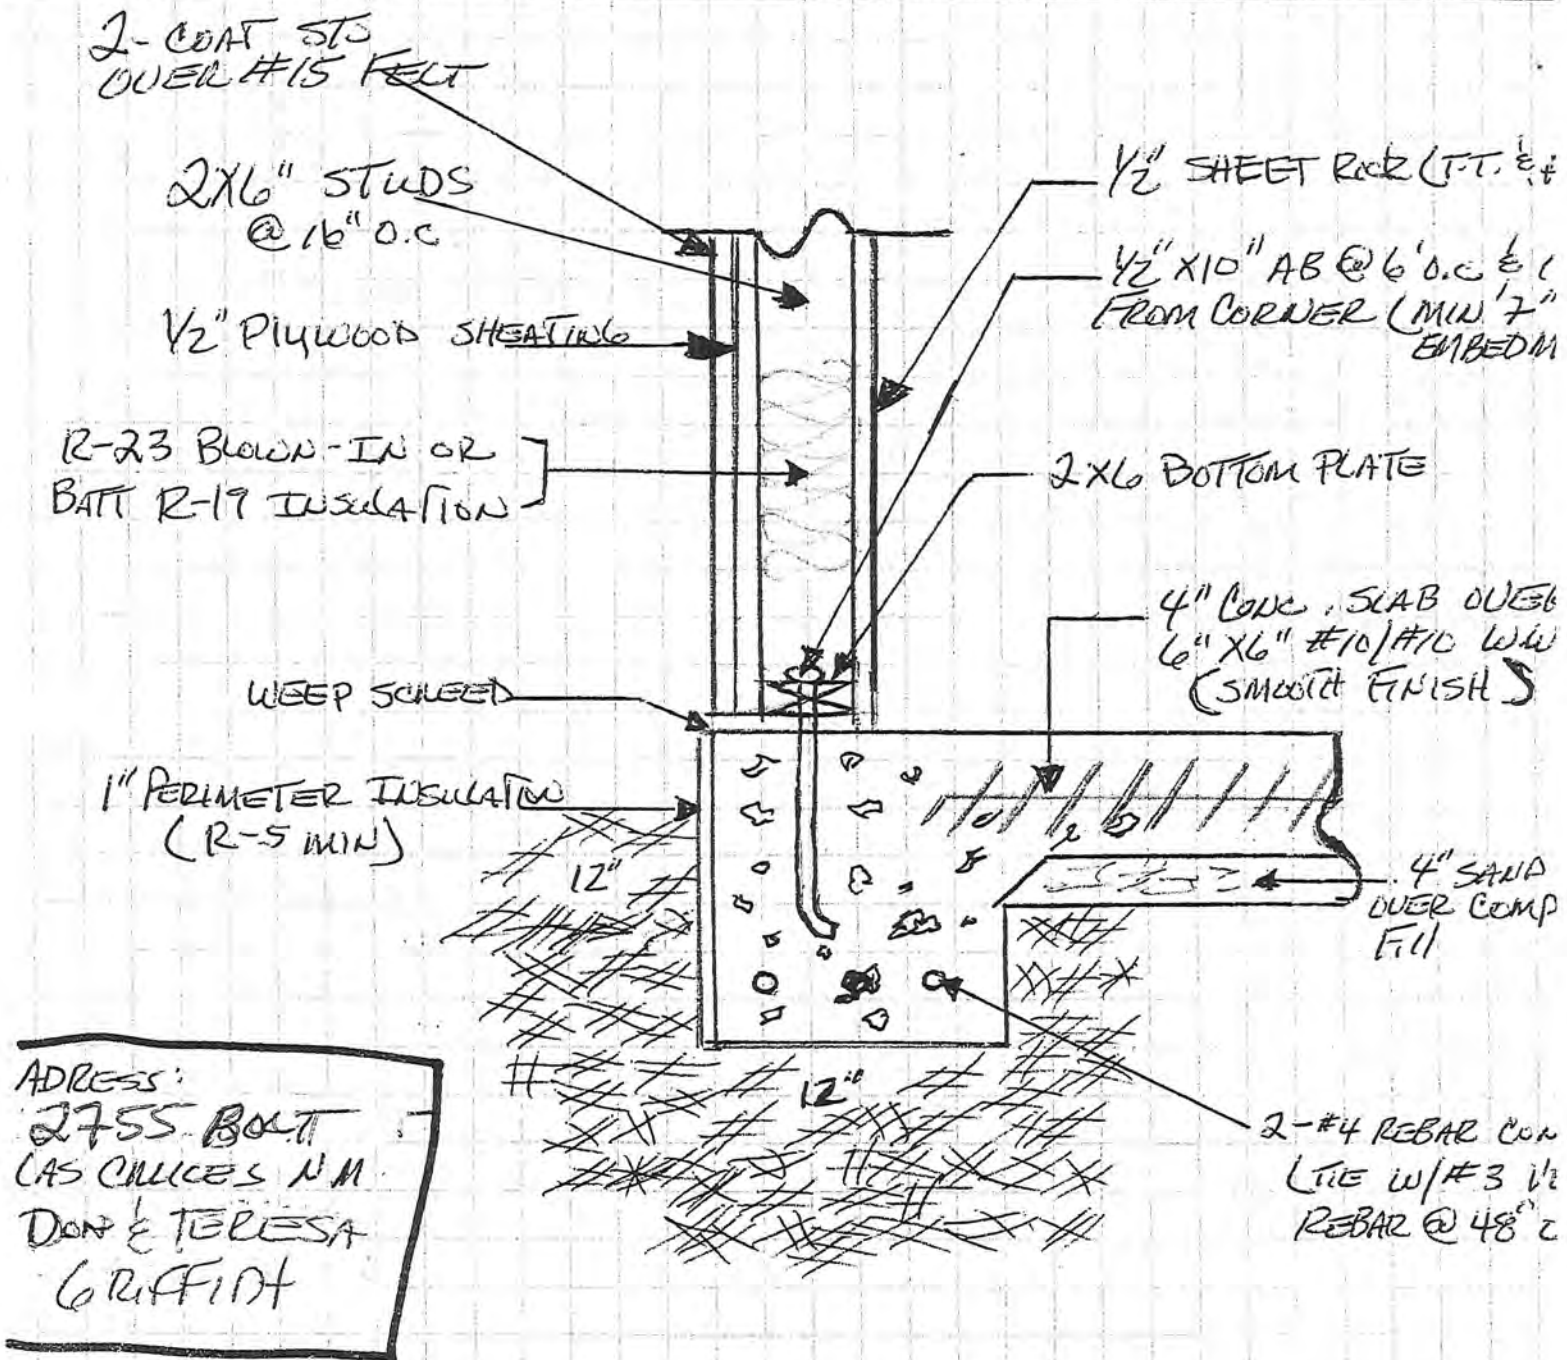 2-COAT STO
OVER #15 FELT
2X6" STUDS
@ 16" O.C
1/2" PLYWOOD SHEATING
R-23 BLOWN-IN OR
BATT R-19 INSULATION
WEEP SCREED
1" PERIMETER INSULATION
(R-5 MIN)
12"
12"
1/2" SHEET ROCK (T.T. &
1/2" X10" AB @ 6' O.C &
FROM CORNER (MIN 7"
EMBEDM
2X6 BOTTOM PLATE
4" CONC. SLAB OVER
6" X6" #10/#10 WW
(SMOOTH FINISH)
4" SAND
OVER COMP
Fill
2-#4 REBAR CON
(TIE W/#3
REBAR @ 48"
ADRESS:
2755 BOLT
LAS CRUCES NM
DON & TERESA